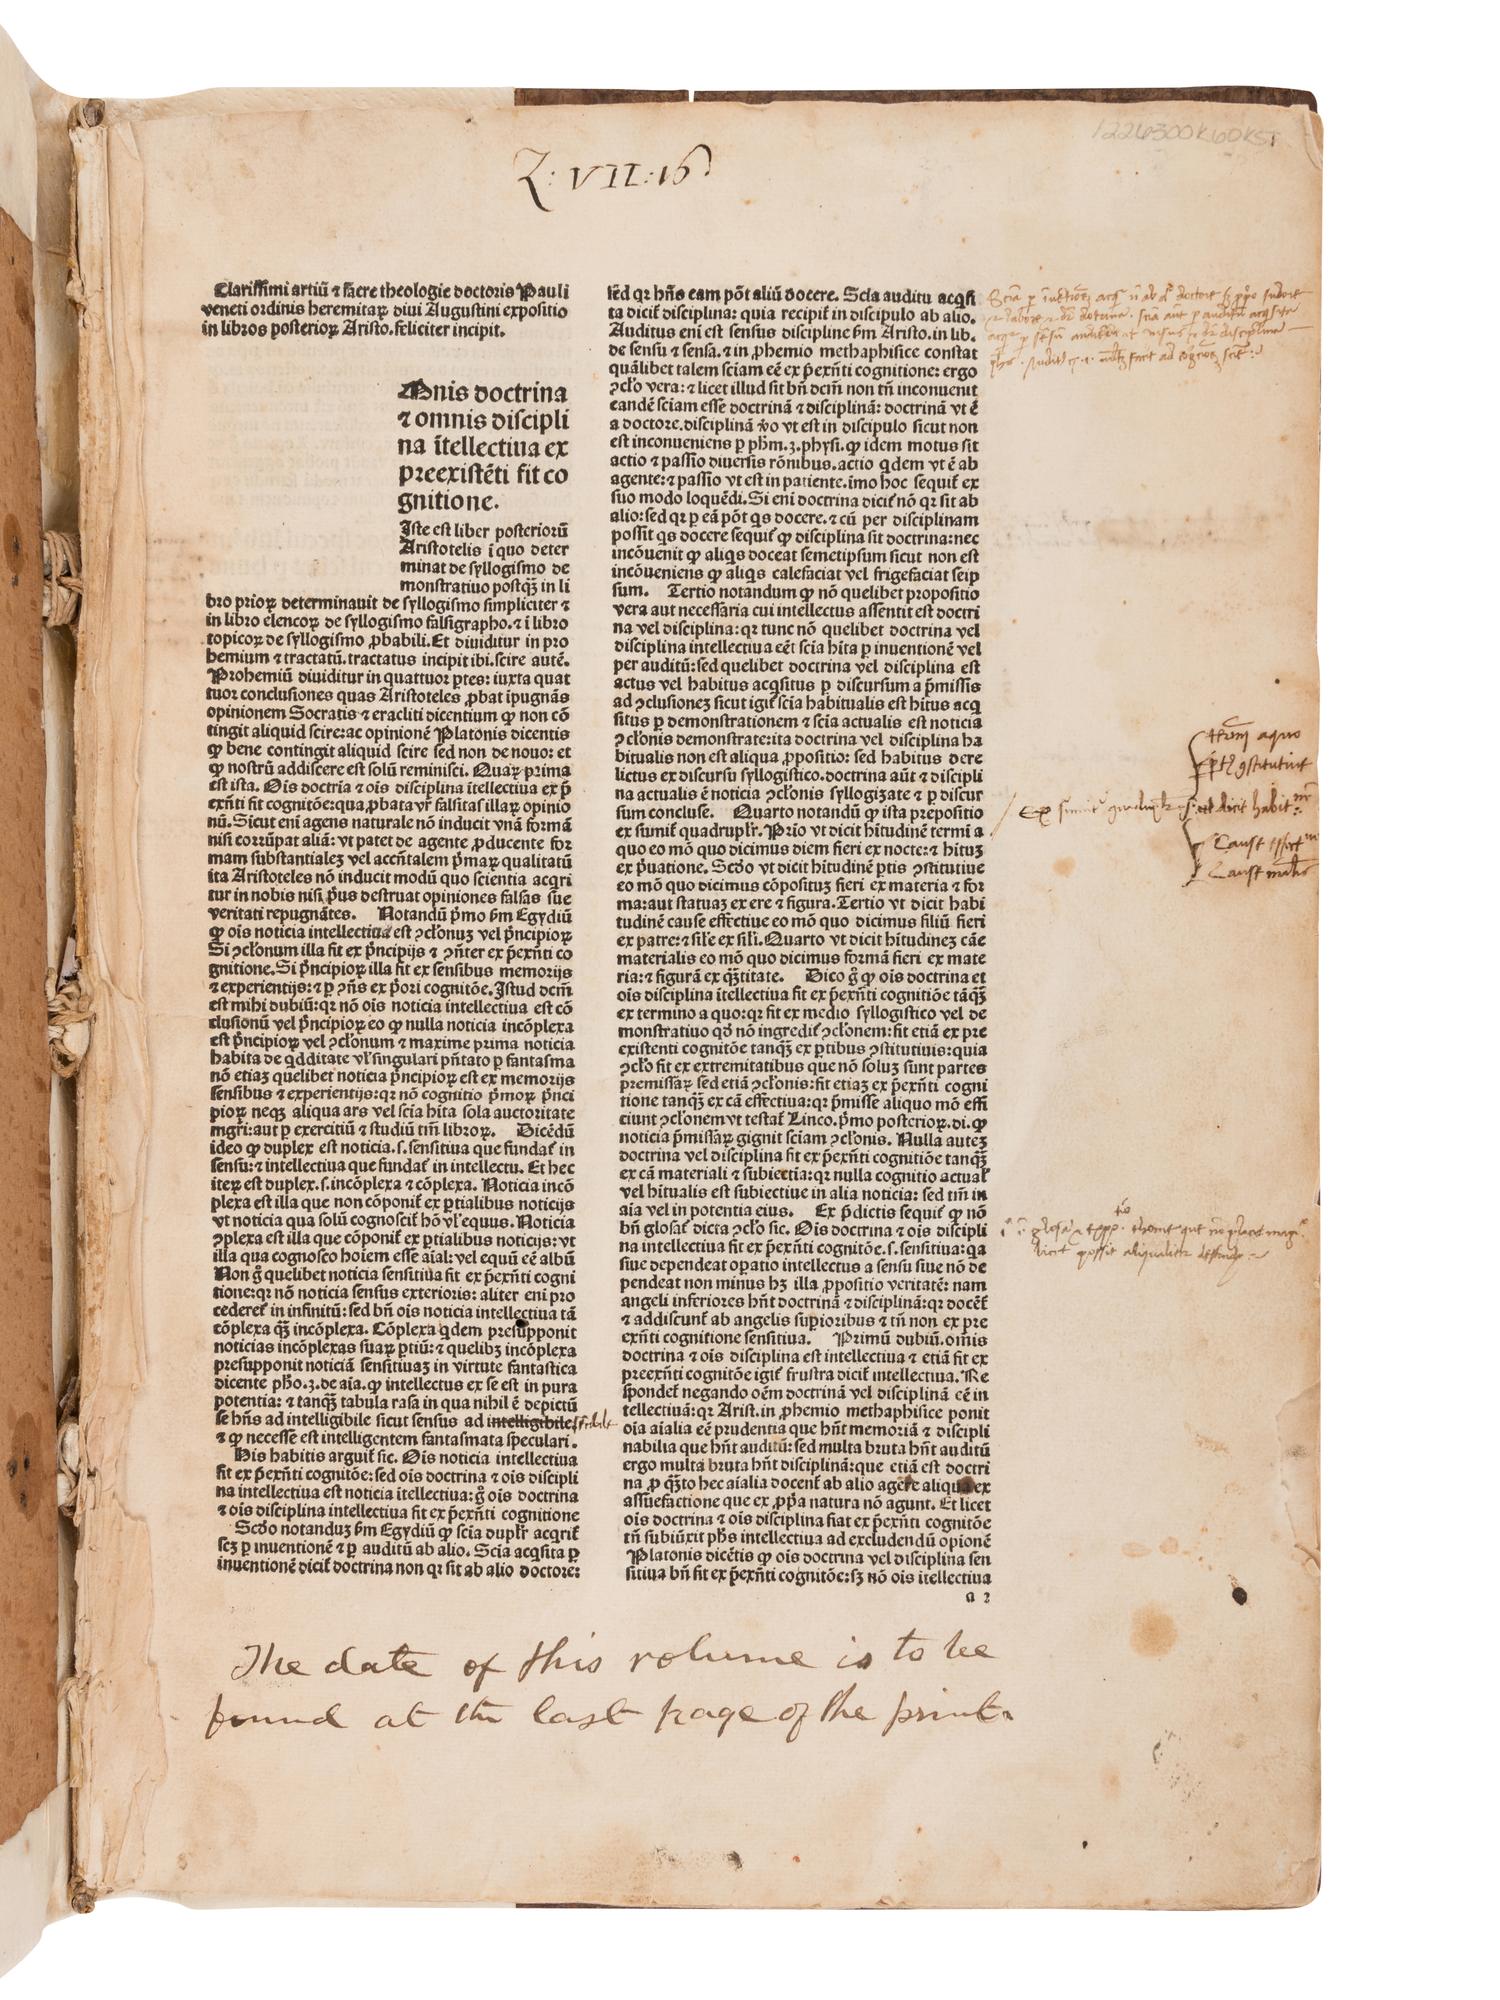 1226300K60KST
Z: VII: 16
Clarissimi artiū ⁊ sacre theologie doctoris Pauli
veneti ordinis heremitaꝝ divi Augustini expositio
in libros posterioꝝ Aristo. feliciter incipit.
Mnis doctrina
⁊ omnis discipli
na ītellectiua ex
preexistēti fit co
gnitione.
Iste est liber posteriorū
Aristotelis ī quo deter
minat de syllogismo de
monstratiuo postq̄ꝫ in li
bro prioꝝ determinauit de syllogismo simpliciter ⁊
in libro elencoꝝ de syllogismo falsigrapho. ⁊ ī libro
topicoꝝ de syllogismo ꝓbabili. Et diuiditur in pro
hemium ⁊ tractatū. tractatus incipit ibi. scire autē.
Prohemiū diuiditur in quattuor ꝑtes: iuxta quat
tuor conclusiones quas Aristoteles ꝓbat īpugnās
opinionem Socratis ⁊ eracliti dicentium ꝙ non cō
tingit aliquid scire: ac opinionē Platonis dicentis
ꝙ bene contingit aliquid scire sed non de nouo: et
ꝙ nostrū addiscere est solū reminisci. Quaꝝ prima
est ista. Ois doctria ⁊ ois disciplina ītellectiua ex p̄
exn̄ti fit cognitōe: qua ꝓbata vr̄ falsitas illaꝝ opinio
nū. Sicut eni agens naturale nō inducit vnā formā
nisi corrūpat aliā: vt patet de agente ꝓducente for
mam substantialeꝫ vel accn̄talem p̄maꝝ qualitatū
ita Aristoteles nō inducit modū quo scientia acqri
tur in nobis nisi p̄us destruat opiniones falsas sue
veritati repugnātes. Notandū p̄mo ẜm Egydiū
ꝙ ois noticia intellectiua est ꝯclonuꝫ vel p̄ncipioꝝ
Si ꝯclonum illa fit ex p̄ncipijs ⁊ ꝯn̄ter ex p̄exn̄ti co
gnitione. Si p̄ncipioꝝ illa fit ex sensibus memorijs
⁊ experientijs: ⁊ ꝑ ꝯn̄s ex p̄ori cognitōe. Istud dcm̄
est mihi dubiū: qr nō ois noticia intellectiua est cō
clusionū vel p̄ncipioꝝ eo ꝙ nulla noticia incōplexa
est p̄ncipioꝝ vel ꝯclonum ⁊ maxime prima noticia
habita de qdditate vl singulari pn̄tato ꝑ fantasma
nō etiaꝫ quelibet noticia p̄ncipioꝝ est ex memorijs
sensibus ⁊ experientijs: qr nō cognitio p̄moꝝ p̄nci
pioꝝ neqꝫ aliqua ars vel scia hita sola auctoritate
mgri: aut ꝑ exercitiū ⁊ studiū tm̄ libroꝝ. Dicēdū
ideo ꝙ duplex est noticia. s. sensitiua que fundat in
sensu: ⁊ intellectiua que fundat in intellectu. Et hec
iteꝝ est duplex. s. incōplexa ⁊ cōplexa. Noticia incō
plexa est illa que non cōponit ex ꝑtialibus noticijs
vt noticia qua solū cognoscit hō vl equus. Noticia
ꝯplexa est illa que cōponit ex ꝑtialibus noticijs: vt
illa qua cognosco hoiem esse aial: vel equū eē albū
Non g̊ quelibet noticia sensitiua fit ex p̄exn̄ti cogni
tione: qr nō noticia sensus exterioris: aliter eni pro
cederet in infinitū: sed bn̄ ois noticia intellectiua tā
cōplexa q̄ꝫ incōplexa. Cōplexa qdem presupponit
noticias incōplexas suaꝝ ꝑtiū: ⁊ quelibꝫ incōplexa
presupponit noticiā sensitiuaꝫ in virtute fantastica
dicente pho. 3. de aia. ꝙ intellectus ex se est in pura
potentia: ⁊ tanq̄ꝫ tabula rasa in qua nihil ē depictū
se hn̄s ad intelligibile sicut sensus ad intelligibile sensibile
⁊ ꝙ necesse est intelligentem fantasmata speculari.
His habitis arguit sic. Ois noticia intellectiua
fit ex p̄exn̄ti cognitōe: sed ois doctrina ⁊ ois discipli
na intellectiua est noticia ītellectiua: g̊ ois doctrina
⁊ ois disciplina intellectiua fit ex p̄exn̄ti cognitione
Scdo notanduꝫ ẜm Egydiū ꝙ scia duplr acqrit
scꝫ ꝑ inuentionē ⁊ ꝑ auditū ab alio. Scia acqsita ꝑ
inuentionē dicit doctrina non qr sit ab alio doctore:
sed qr hn̄s eam pōt aliū docere. Scia auditu acqsi
ta dicit disciplina: quia recipit in discipulo ab alio.
Auditus eni est sensus discipline ẜm Aristo. in lib.
de sensu ⁊ sensa. ⁊ in ꝓhemio methaphisice constat
quālibet talem sciam eē ex p̄exn̄ti cognitione: ergo
ꝯclo vera: ⁊ licet illud sit bn̄ dcm̄ non tn̄ inconuenit
eandē sciam esse doctrinā ⁊ disciplinā: doctrinā vt ē
a doctore. disciplinā v̊o vt est in discipulo sicut non
est inconueniens ꝑ phm. 3. physi. ꝙ idem motus sit
actio ⁊ passio diuersis rōnibus. actio qdem vt ē ab
agente: ⁊ passio vt est in patiente. imo hoc sequit ex
suo modo loquēdi. Si eni doctrina dicit nō qr sit ab
alio: sed qr ꝑ eā pōt qs docere. ⁊ cū per disciplinam
possit qs docere sequit ꝙ disciplina sit doctrina: nec
incōuenit ꝙ aliqs doceat semetipsum sicut non est
incōueniens ꝙ aliqs calefaciat vel frigefaciat seip
sum. Tertio notandum ꝙ nō quelibet propositio
vera aut necessaria cui intellectus assentit est doctri
na vel disciplina: qr tunc nō quelibet doctrina vel
disciplina intellectiua eēt scia hita ꝑ inuentionē vel
per auditū: sed quelibet doctrina vel disciplina est
actus vel habitus acqsitus ꝑ discursum a p̄missis
ad ꝯclusioneꝫ sicut igit scia habitualis est hitus acq
situs ꝑ demonstrationem ⁊ scia actualis est noticia
ꝯclonis demonstrate: ita doctrina vel disciplina ha
bitualis non est aliqua ꝓpositio: sed habitus dere
lictus ex discursu syllogistico. doctrina aūt ⁊ discipli
na actualis ē noticia ꝯclonis syllogizate ⁊ ꝑ discur
sum concluse. Quarto notandū ꝙ ista prepositio
ex sumit quadruplr. Prio vt dicit hitudinē termi a
quo eo mō quo dicimus diem fieri ex nocte: ⁊ hituꝫ
ex p̄uatione. Scdo vt dicit hitudinē ꝑtis ꝯstitutiue
eo mō quo dicimus cōpositum fieri ex materia ⁊ for
ma: aut statuaꝫ ex ere ⁊ figura. Tertio vt dicit habi
tudinē cause effectiue eo mō quo dicimus filiū fieri
ex patre: ⁊ sile ex sili. Quarto vt dicit hitudineꝫ cāe
materialis eo mō quo dicimus formā fieri ex mate
ria: ⁊ figurā ex q̄titate. Dico g̊ ꝙ ois doctrina et
ois disciplina ītellectiua fit ex p̄exn̄ti cognitiōe tāq̄ꝫ
ex termino a quo: qr fit ex medio syllogistico vel de
monstratiuo qd nō ingredit ꝯclonem: fit etiā ex pre
existenti cognitōe tanq̄ꝫ ex ꝑtibus ꝯstitutiuis: quia
ꝯclo fit ex extremitatibus que nō soluꝫ sunt partes
premissaꝝ sed etiā ꝯclonis: fit etiaꝫ ex p̄exn̄ti cogni
tione tanq̄ꝫ ex cā effectiua: qr p̄misse aliquo mō effi
ciunt ꝯclonem vt testat Linco. p̄mo posterioꝝ. di. ꝙ
noticia p̄missaꝝ gignit sciam ꝯclonis. Nulla auteꝫ
doctrina vel disciplina fit ex p̄exn̄ti cognitiōe tanq̄ꝫ
ex cā materiali ⁊ subiectia: qr nulla cognitio actual
vel hitualis est subiectiue in alia noticia: sed tm̄ in
aīa vel in potentia eius. Ex p̄dictis sequit ꝙ nō
bn̄ glosat dicta ꝯclo sic. Ois doctrina ⁊ ois discipli
na intellectiua fit ex p̄exn̄ti cognitōe. s. sensitiua: qa
siue dependeat oꝑatio intellectus a sensu siue nō de
pendeat non minus hꝫ illa ꝓpositio veritatē: nam
angeli inferiores hn̄t doctrinā ⁊ disciplinā: qr docēt
⁊ addiscunt ab angelis suꝑioribus ⁊ tn̄ non ex pre
exn̄ti cognitione sensitiua. Primū dubiū. omīs
doctrina ⁊ ois disciplina est intellectiua ⁊ etiā fit ex
preexn̄ti cognitōe igit frustra dicit intellectiua. Re
spondet negando oēm doctrinā vel disciplinā eē in
tellectiuā: qr Arist. in ꝓhemio methaphisice ponit
oia aialia eē prudentia que hn̄t memoriā ⁊ discipli
nabilia que hn̄t auditū: sed multa bruta hn̄t auditū
ergo multa bruta hn̄t disciplinā: que etiā est doctri
na ꝓ q̄to hec aialia docent ab alio agere aliqua ex
assuefactione que ex ꝓpa natura nō agunt. Et licet
ois doctrina ⁊ ois disciplina fiat ex p̄exn̄ti cognitōe
tn̄ subiūxit phs intellectiua ad excludendū opionē
Platonis dicētis ꝙ ois doctrina vel disciplina sen
sitiua bn̄ fit ex p̄exn̄ti cognitōe: sꝫ nō ois ītellectiua
a 2
a quo
Ex dicit habit
Cause
Cause
The date of this volume is to be
found at the last page of the print.